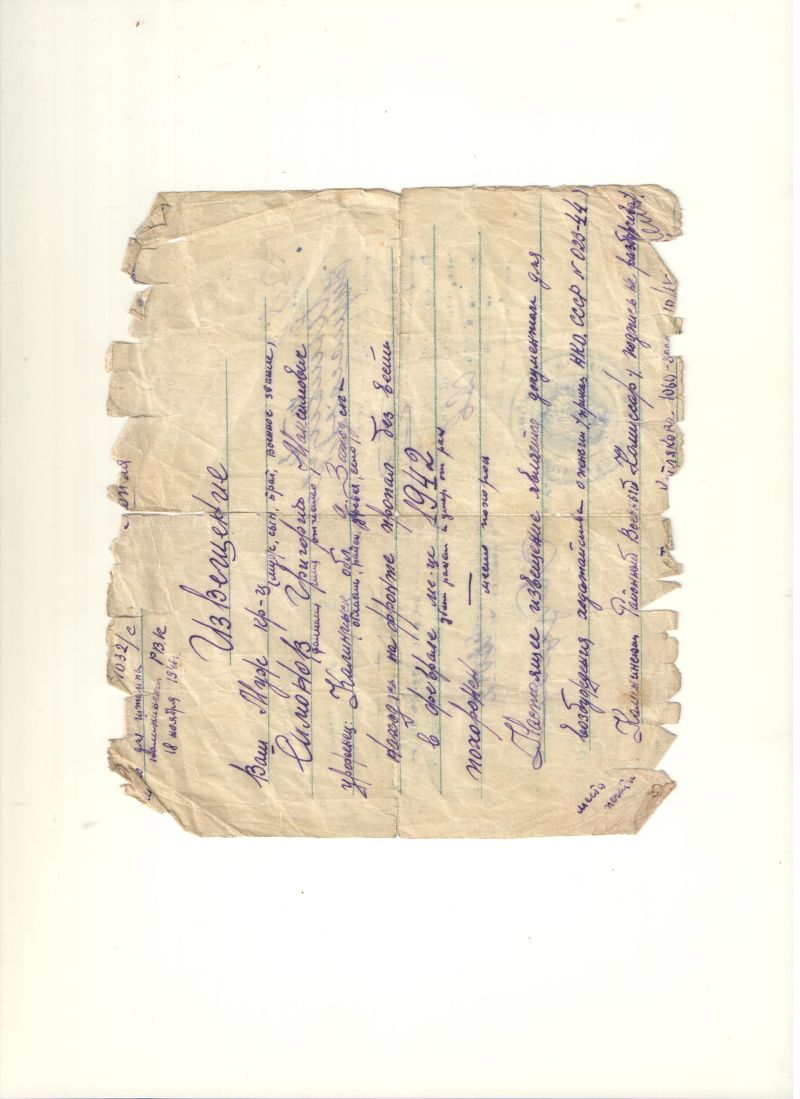 Копия
1032/с
для штампа
Калининский РВК
18 ноября 1946г.
Извещение
Ваш Муж кр-ц (муж, сын, брат, военное звание,
Симонов Григорий Максимович
фамилия, имя, отчество
уроженец: Калининск обл
область, район, деревня, село
находясь на фронте пропал без вести
в феврале м-це 1942
похоронен —
место похорон
Настоящее извещение является документом для
возбуждения ходатайства о пенсии (приказ НКО СССР N 023-44)
Калининский Районный Военный Комиссар / подпись не разборчива/
место
печати